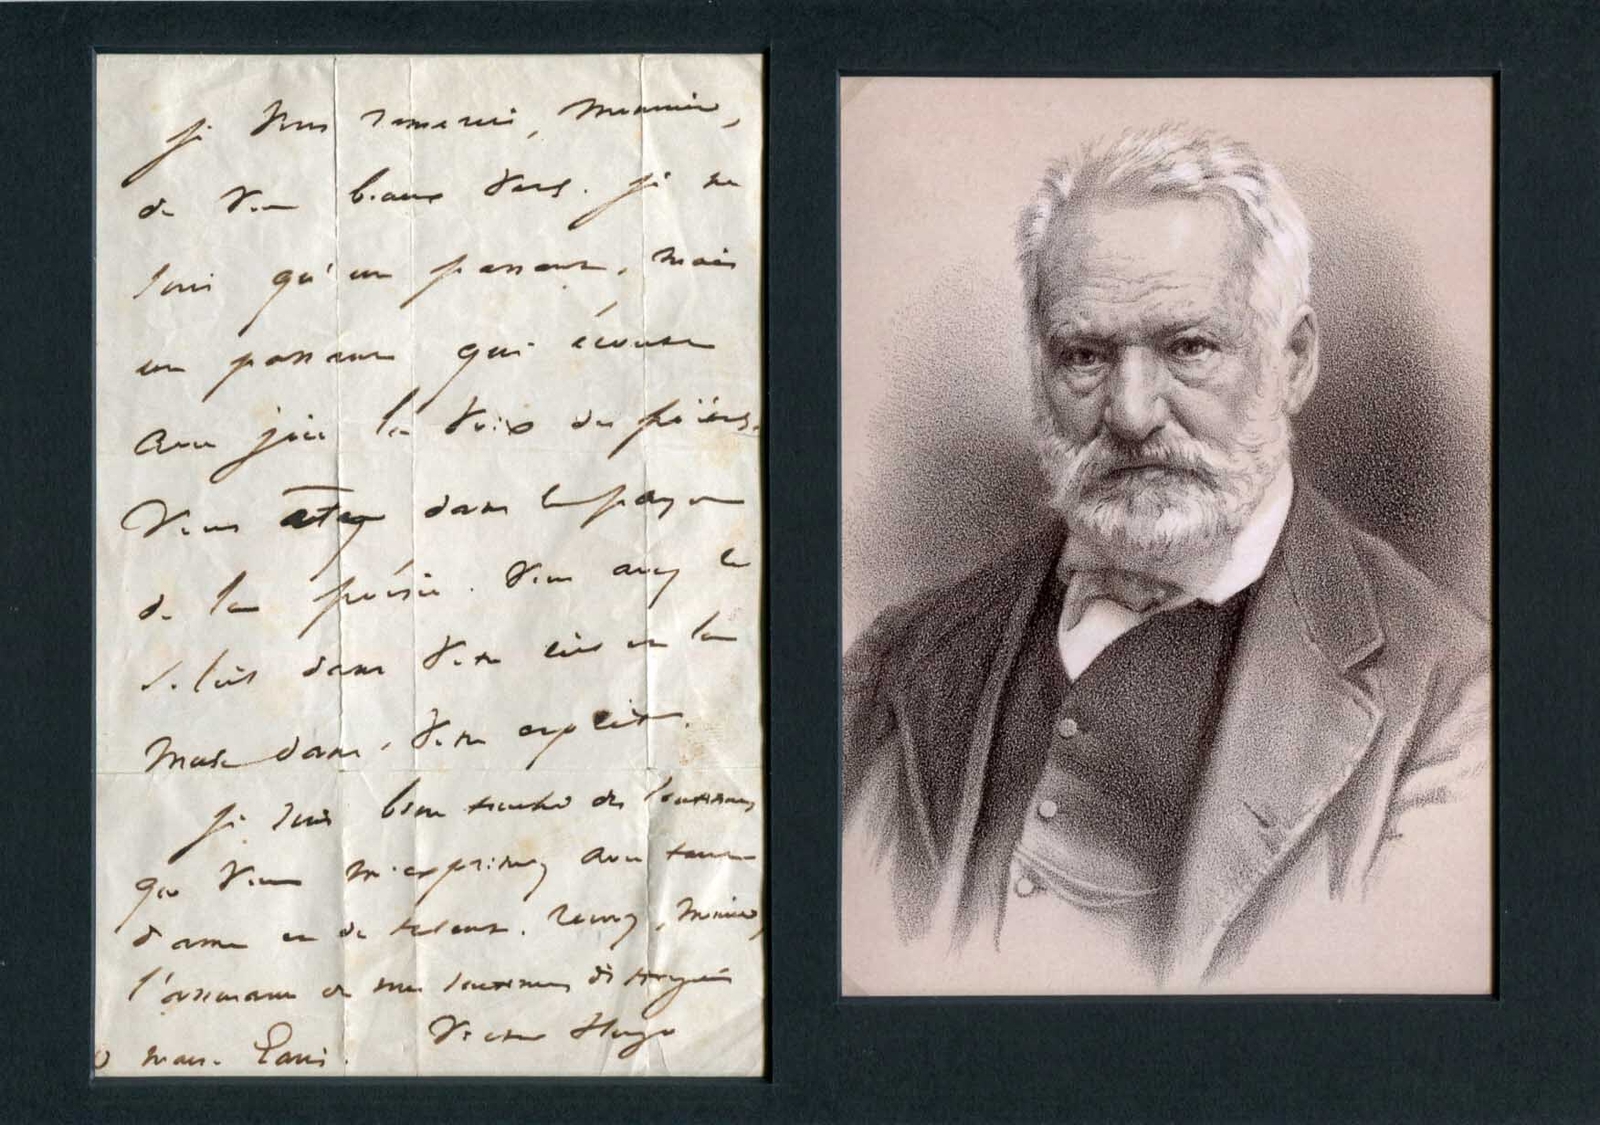 je vous remercie, Monsieur,
de vos beaux vers. Je ne
suis qu'un passant, mais
un passant qui écoute
avec joie la voix des poëtes.
Vous êtes dans le pays
de la poésie. Vous avez le
soleil dans votre ciel et la
muse dans votre esprit.
Je suis bien touché des sentiments
que vous m'exprimez avec tant
d'âme et de talent. Recevez, Monsieur,
l'assurance de mes sentiments distingués
Victor Hugo
mars. Paris.